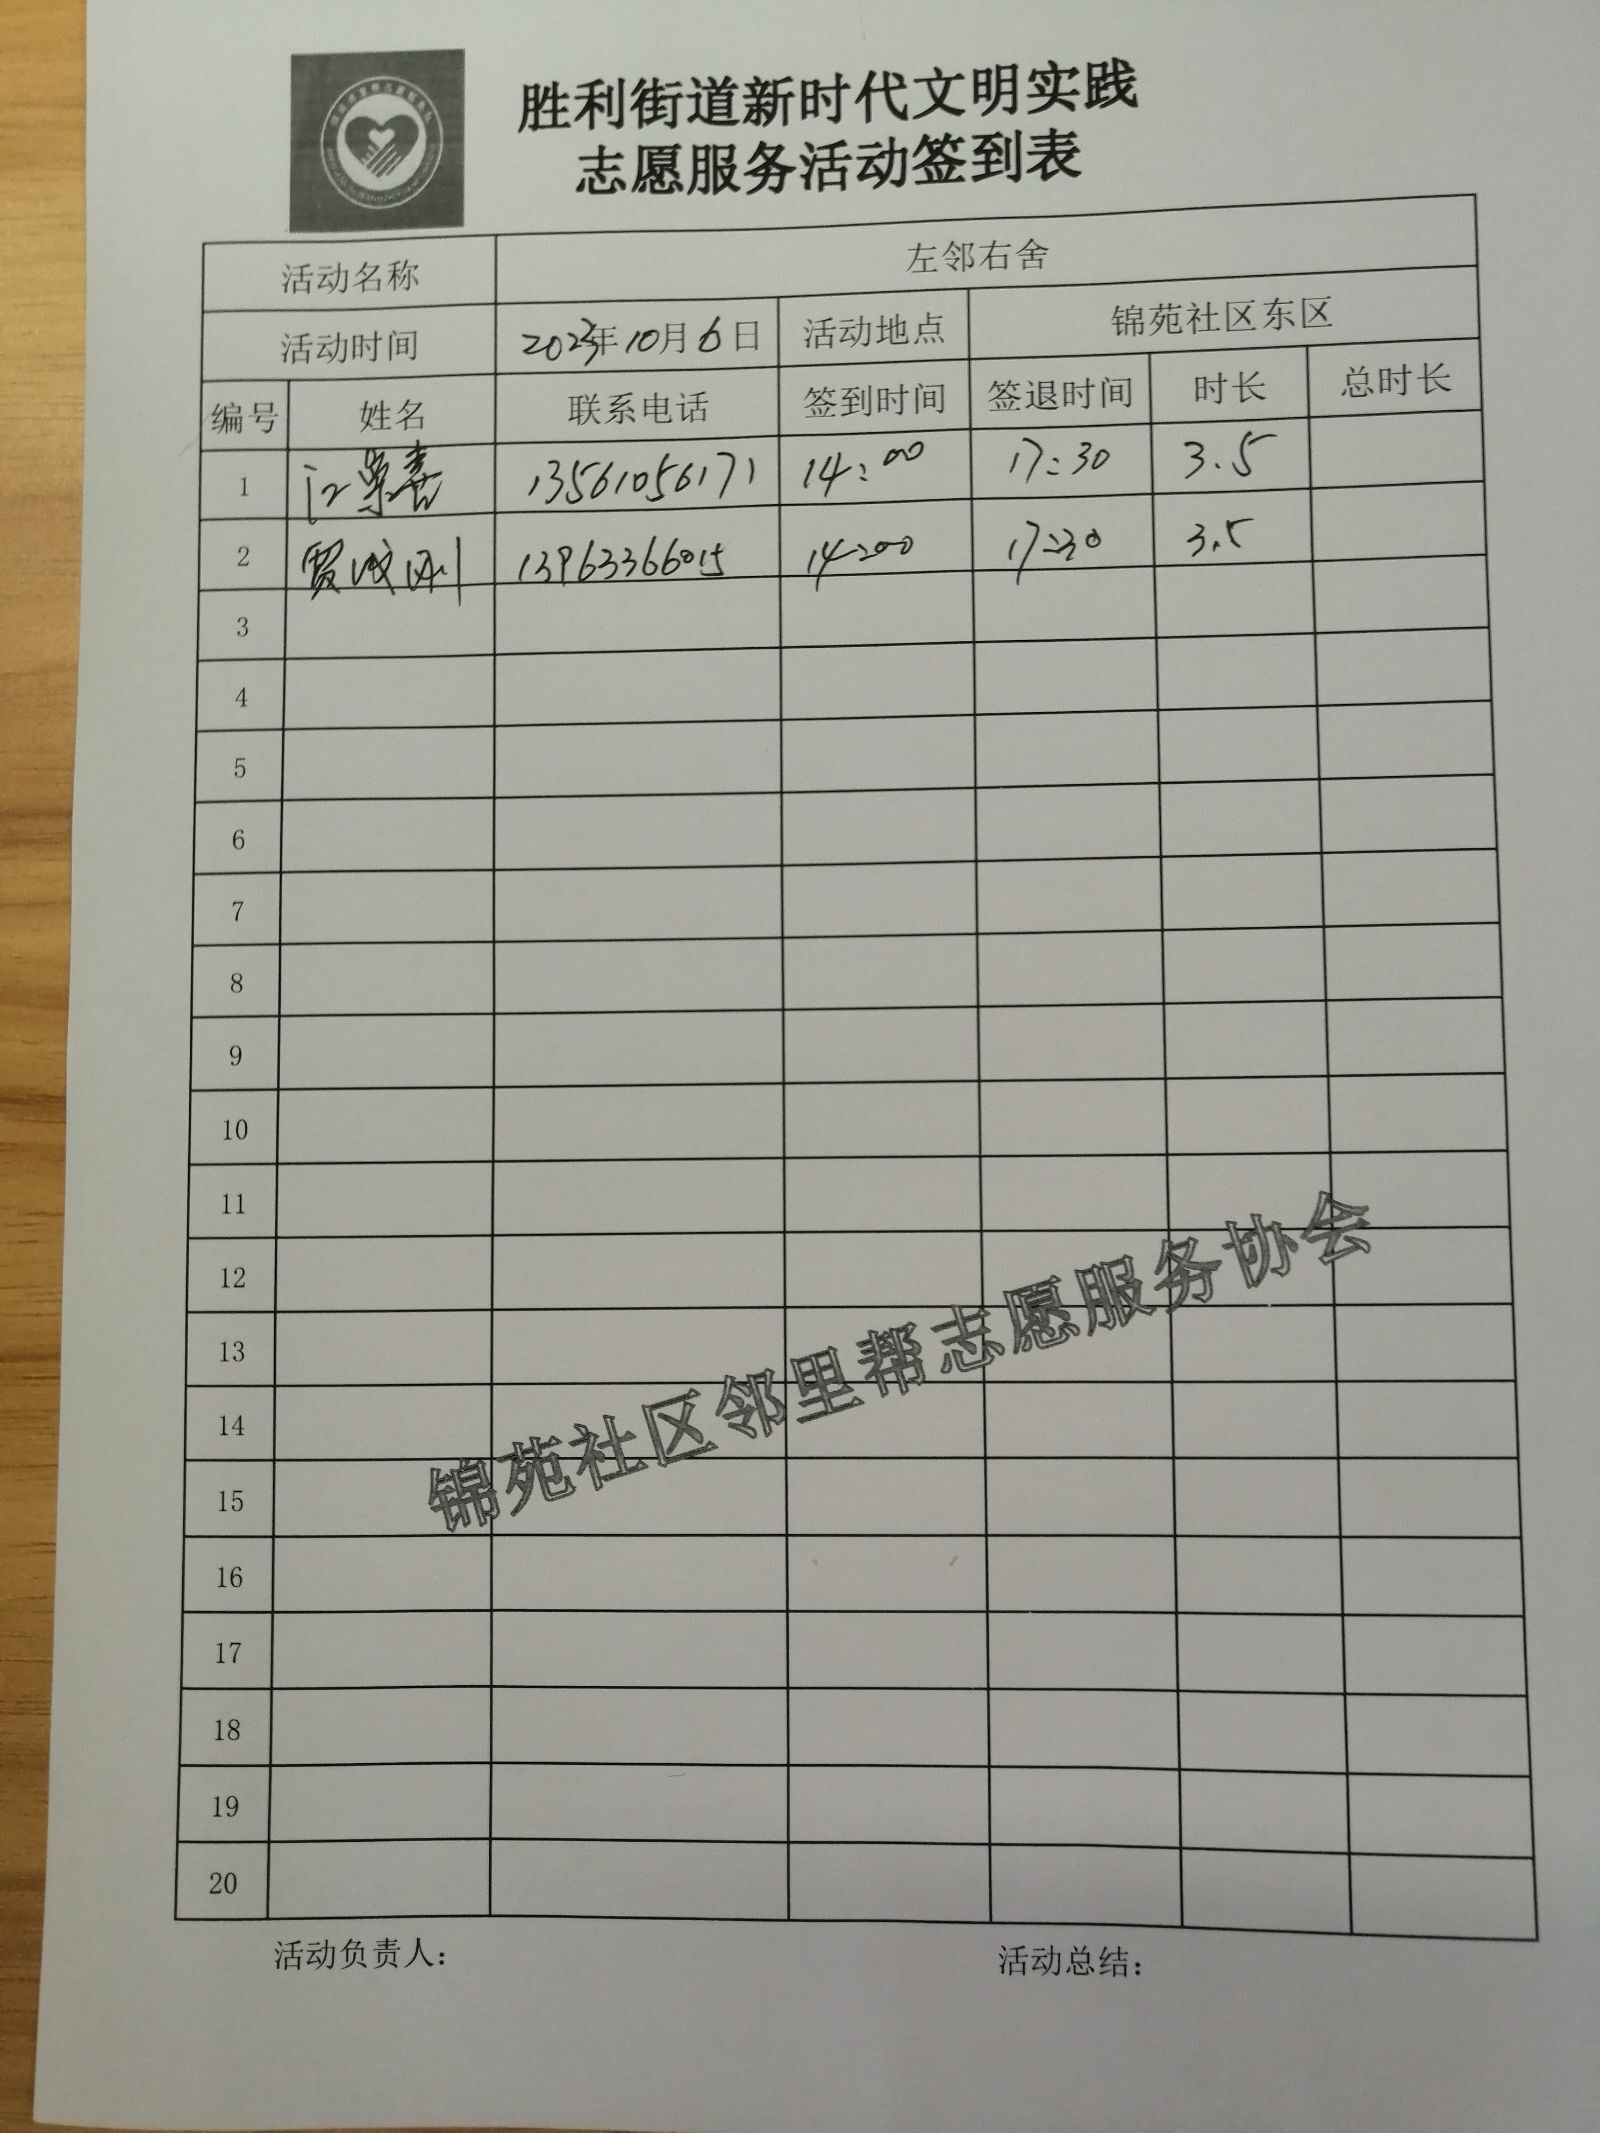 胜利街道新时代文明实践
志愿服务活动签到表
活动名称 左邻右舍
活动时间 2023年10月6日 活动地点 锦苑社区东区
编号 姓名 联系电话 签到时间 签退时间 时长 总时长
1 江景喜 13561056171 14:00 17:30 3.5
2 贾成刚 13963366015 14:00 17:30 3.5
3
4
5
6
7
8
9
10
11
12
13
14
15
16
17
18
19
20
锦苑社区邻里帮志愿服务协会
活动负责人： 活动总结：